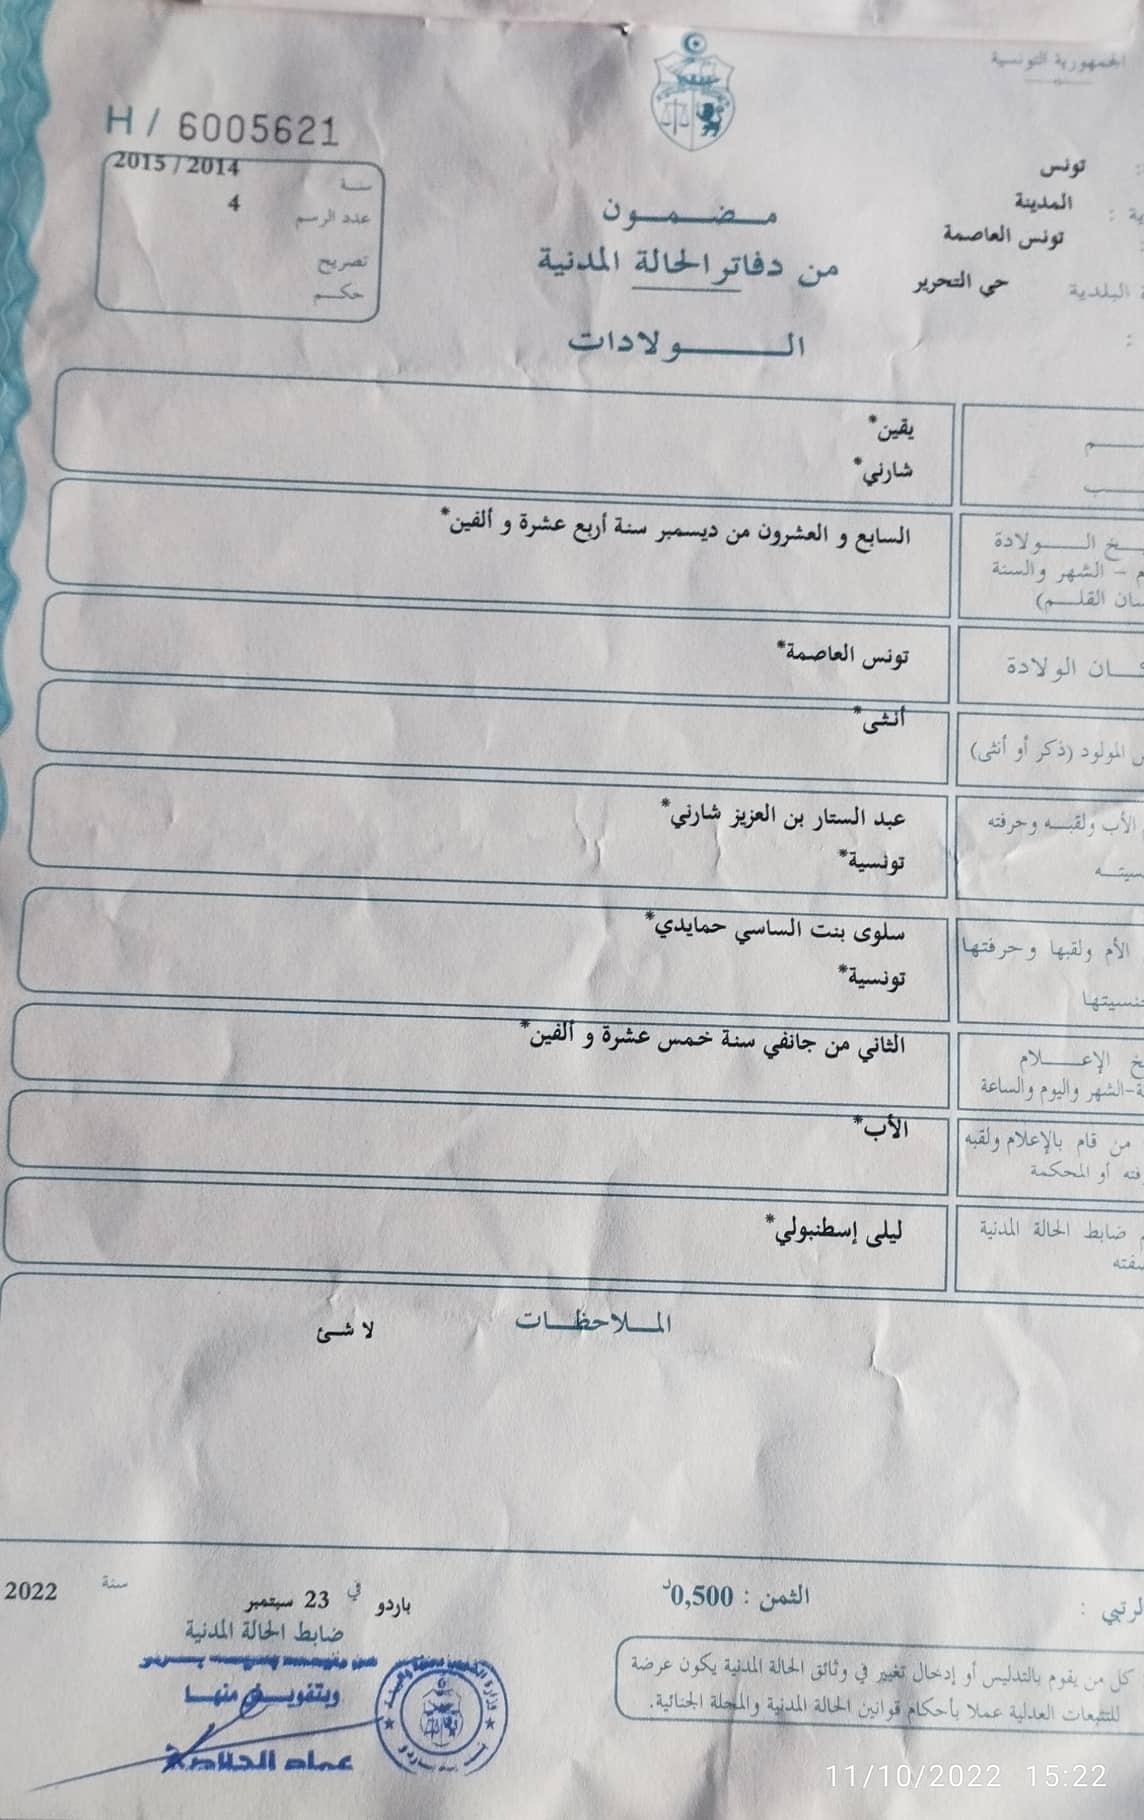 الجمهورية التونسية
H / 6005621
2015 / 2014
سنة
عدد الرسم 4
تصريح
حكم
تونس
المدينة
تونس العاصمة
البلدية حي التحرير
مضمون
من دفاتر الحالة المدنية
الولادات
يقين*
شارني*
الولادة السابع و العشرون من ديسمبر سنة أربع عشرة و ألفين*
– الشهر والسنة
القلم)
الولادة تونس العاصمة*
المولود (ذكر أو أنثى) أنثى*
الأب ولقبه وحرفته عبد الستار بن العزيز شارني*
تونسية*
الأم ولقبها وحرفتها سلوى بنت الساسي حمايدي*
تونسية*
الإعلام الثاني من جانفي سنة خمس عشرة و ألفين*
-الشهر واليوم والساعة
من قام بالإعلام ولقبه الأب*
أو المحكمة
ضابط الحالة المدنية ليلى إسطنبولي*
الملاحظات
لا شئ
الثمن : 0,500د
باردو في 23 سبتمبر سنة 2022
ضابط الحالة المدنية
وبتفويض منها
كل من يقوم بالتدليس أو إدخال تغيير في وثائق الحالة المدنية يكون عرضة
للتتبعات العدلية عملا بأحكام قوانين الحالة المدنية والمجلة الجنائية.
11/10/2022 15:22